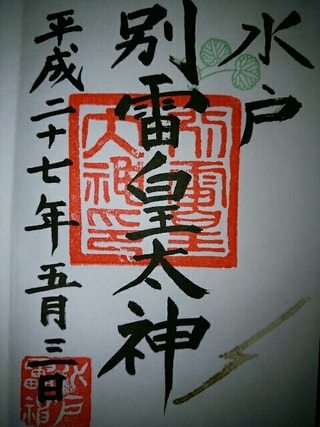 水戸
別雷皇太神
別雷皇
太神印
平成二十七年五月三日
水戸
雷神